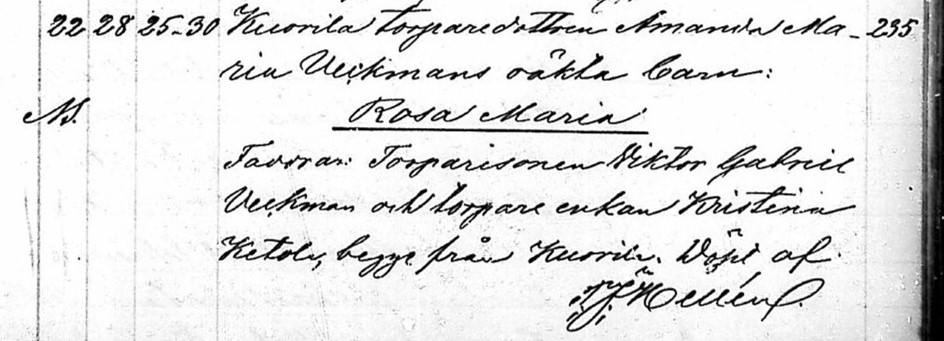 22 28 25-30 Kuorila torparedottren Amanda Ma- 235
ria Veckmans oäkta barn:
Rosa Maria
Faddrar: Torparesonen Viktor Gabriel
Veckman och torpare enkan Kristina
Ketola, begge från Kuorila. Döpt af
Hellén.